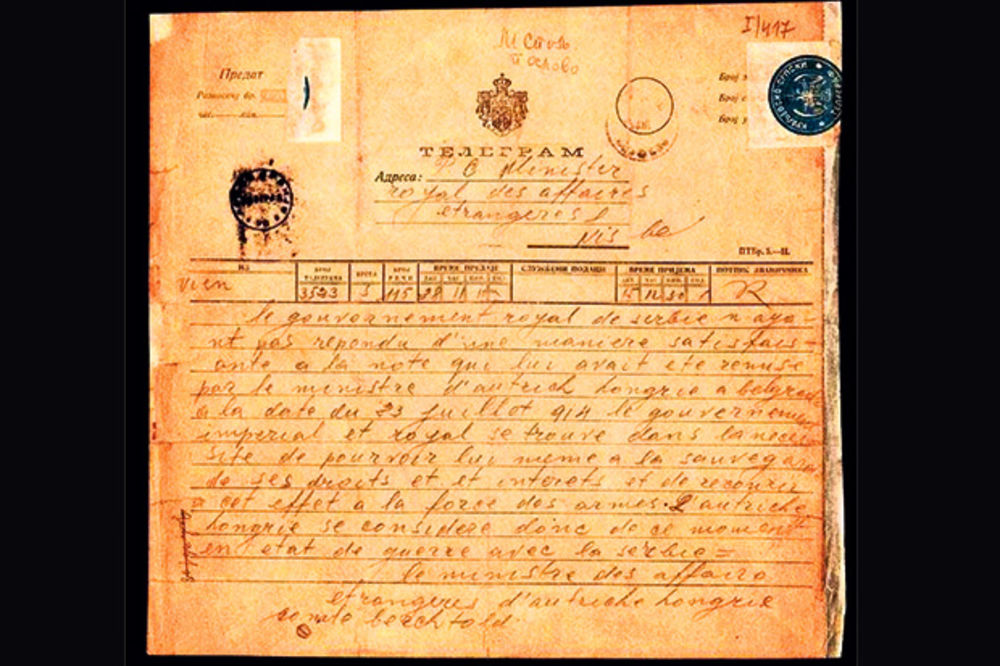 I/417
Предат
Разносачу бр.
час. мин.
Број
Број
Број
ТЕЛЕГРАМ
Адреса: Minister
royal des affaires
etrangeres
Nis
ПТБр. 5.—II.
ИЗ БРОЈ ТЕЛЕГРАМА ВРСТА БРОЈ РЕЧИ ВРЕМЕ ПРЕДАЈЕ СЛУЖБЕНИ ПОДАЦИ ВРЕМЕ ПРИЈЕМА ПОТПИС
ДАН ЧАС МИН. ДАН ЧАС МИН.
Vien 3523 3 28 11 12
le gouvernement royal de serbie n aya-
nt pas repondu d'une maniere satisfais-
ante a la note qui lui avait ete remise
par le ministre d'autrich hongrie a belgrade
a la date du 23 juillot 914 le gouvernement
imperial et royal se trouve dans la neces
site de pourvoir lui meme a la sauvegarde
de ses droits et et interets et de recourir
a cet effet a la force des armes. L'autriche
hongrie se considere donc de ce moment
en état de guerre avec la serbie =
le ministre des affaire
etrangeres d'autriche hongrie
comte berchtold